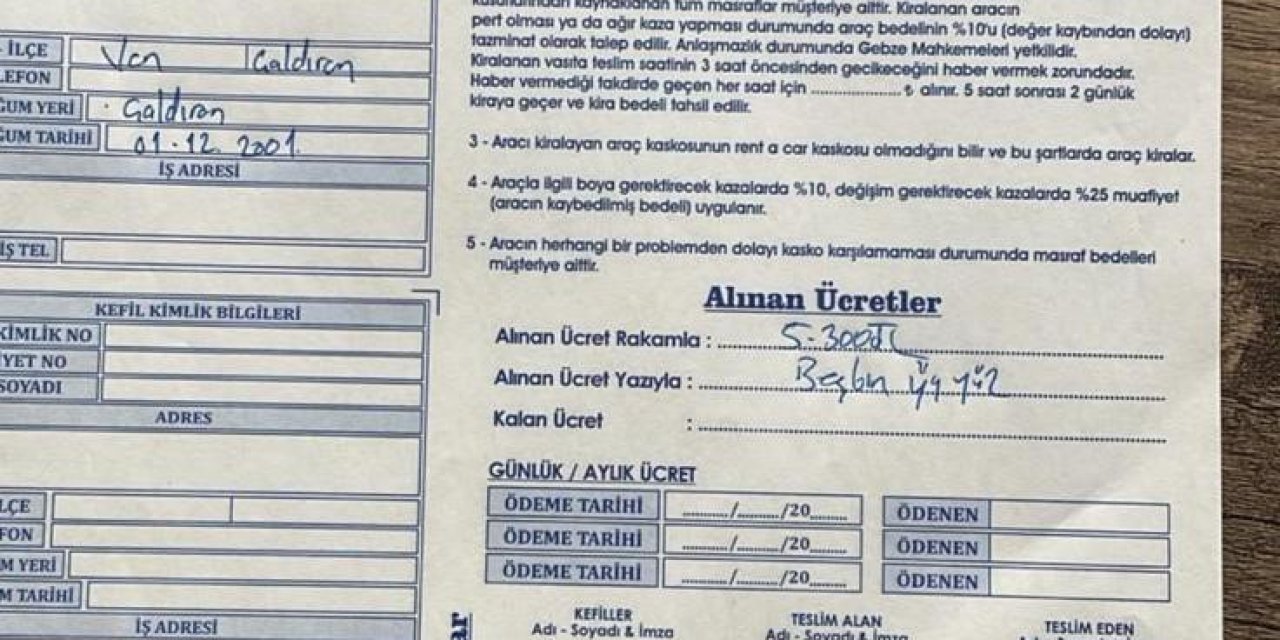 kaynaklanan tüm masraflar müşteriye aittir. Kiralanan aracın
pert olması ya da ağır kaza yapması durumunda araç bedelinin %10'u (değer kaybından dolayı)
tazminat olarak talep edilir. Anlaşmazlık durumunda Gebze Mahkemeleri yetkilidir.
Kiralanan vasıta teslim saatinin 3 saat öncesinden gecikeceğini haber vermek zorundadır.
Haber vermediği takdirde geçen her saat için ........................ ₺ alınır. 5 saat sonrası 2 günlük
kiraya geçer ve kira bedeli tahsil edilir.
3 - Aracı kiralayan araç kaskosunun rent a car kaskosu olmadığını bilir ve bu şartlarda araç kiralar.
4 - Araçla ilgili boya gerektirecek kazalarda %10, değişim gerektirecek kazalarda %25 muafiyet
(aracın kaybedilmiş bedeli) uygulanır.
5 - Aracın herhangi bir problemden dolayı kasko karşılamaması durumunda masraf bedelleri
müşteriye aittir.
İLÇE Van Çaldıran
LEFON
ĞUM YERİ Çaldıran
ĞUM TARİHİ 01.12.2001
İŞ ADRESİ
İŞ TEL
KEFİL KİMLİK BİLGİLERİ
KİMLİK NO
İYET NO
SOYADI
ADRES
LÇE
FON
M YERİ
M TARİHİ
İŞ ADRESİ
Alınan Ücretler
Alınan Ücret Rakamla : 5.300TL
Alınan Ücret Yazıyla : Beşbin üç yüz
Kalan Ücret :
GÜNLÜK / AYLIK ÜCRET
ÖDEME TARİHİ ........../........../20......... ÖDENEN
ÖDEME TARİHİ ........../........../20......... ÖDENEN
ÖDEME TARİHİ ........../........../20......... ÖDENEN
KEFİLLER
Adı - Soyadı & İmza
TESLİM ALAN
Adı - Soyadı & İmza
TESLİM EDEN
lar